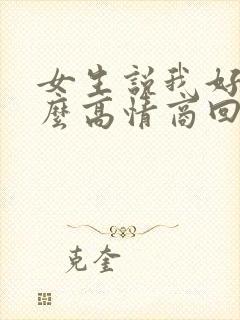 女生説我好
麼高情商回
克奎